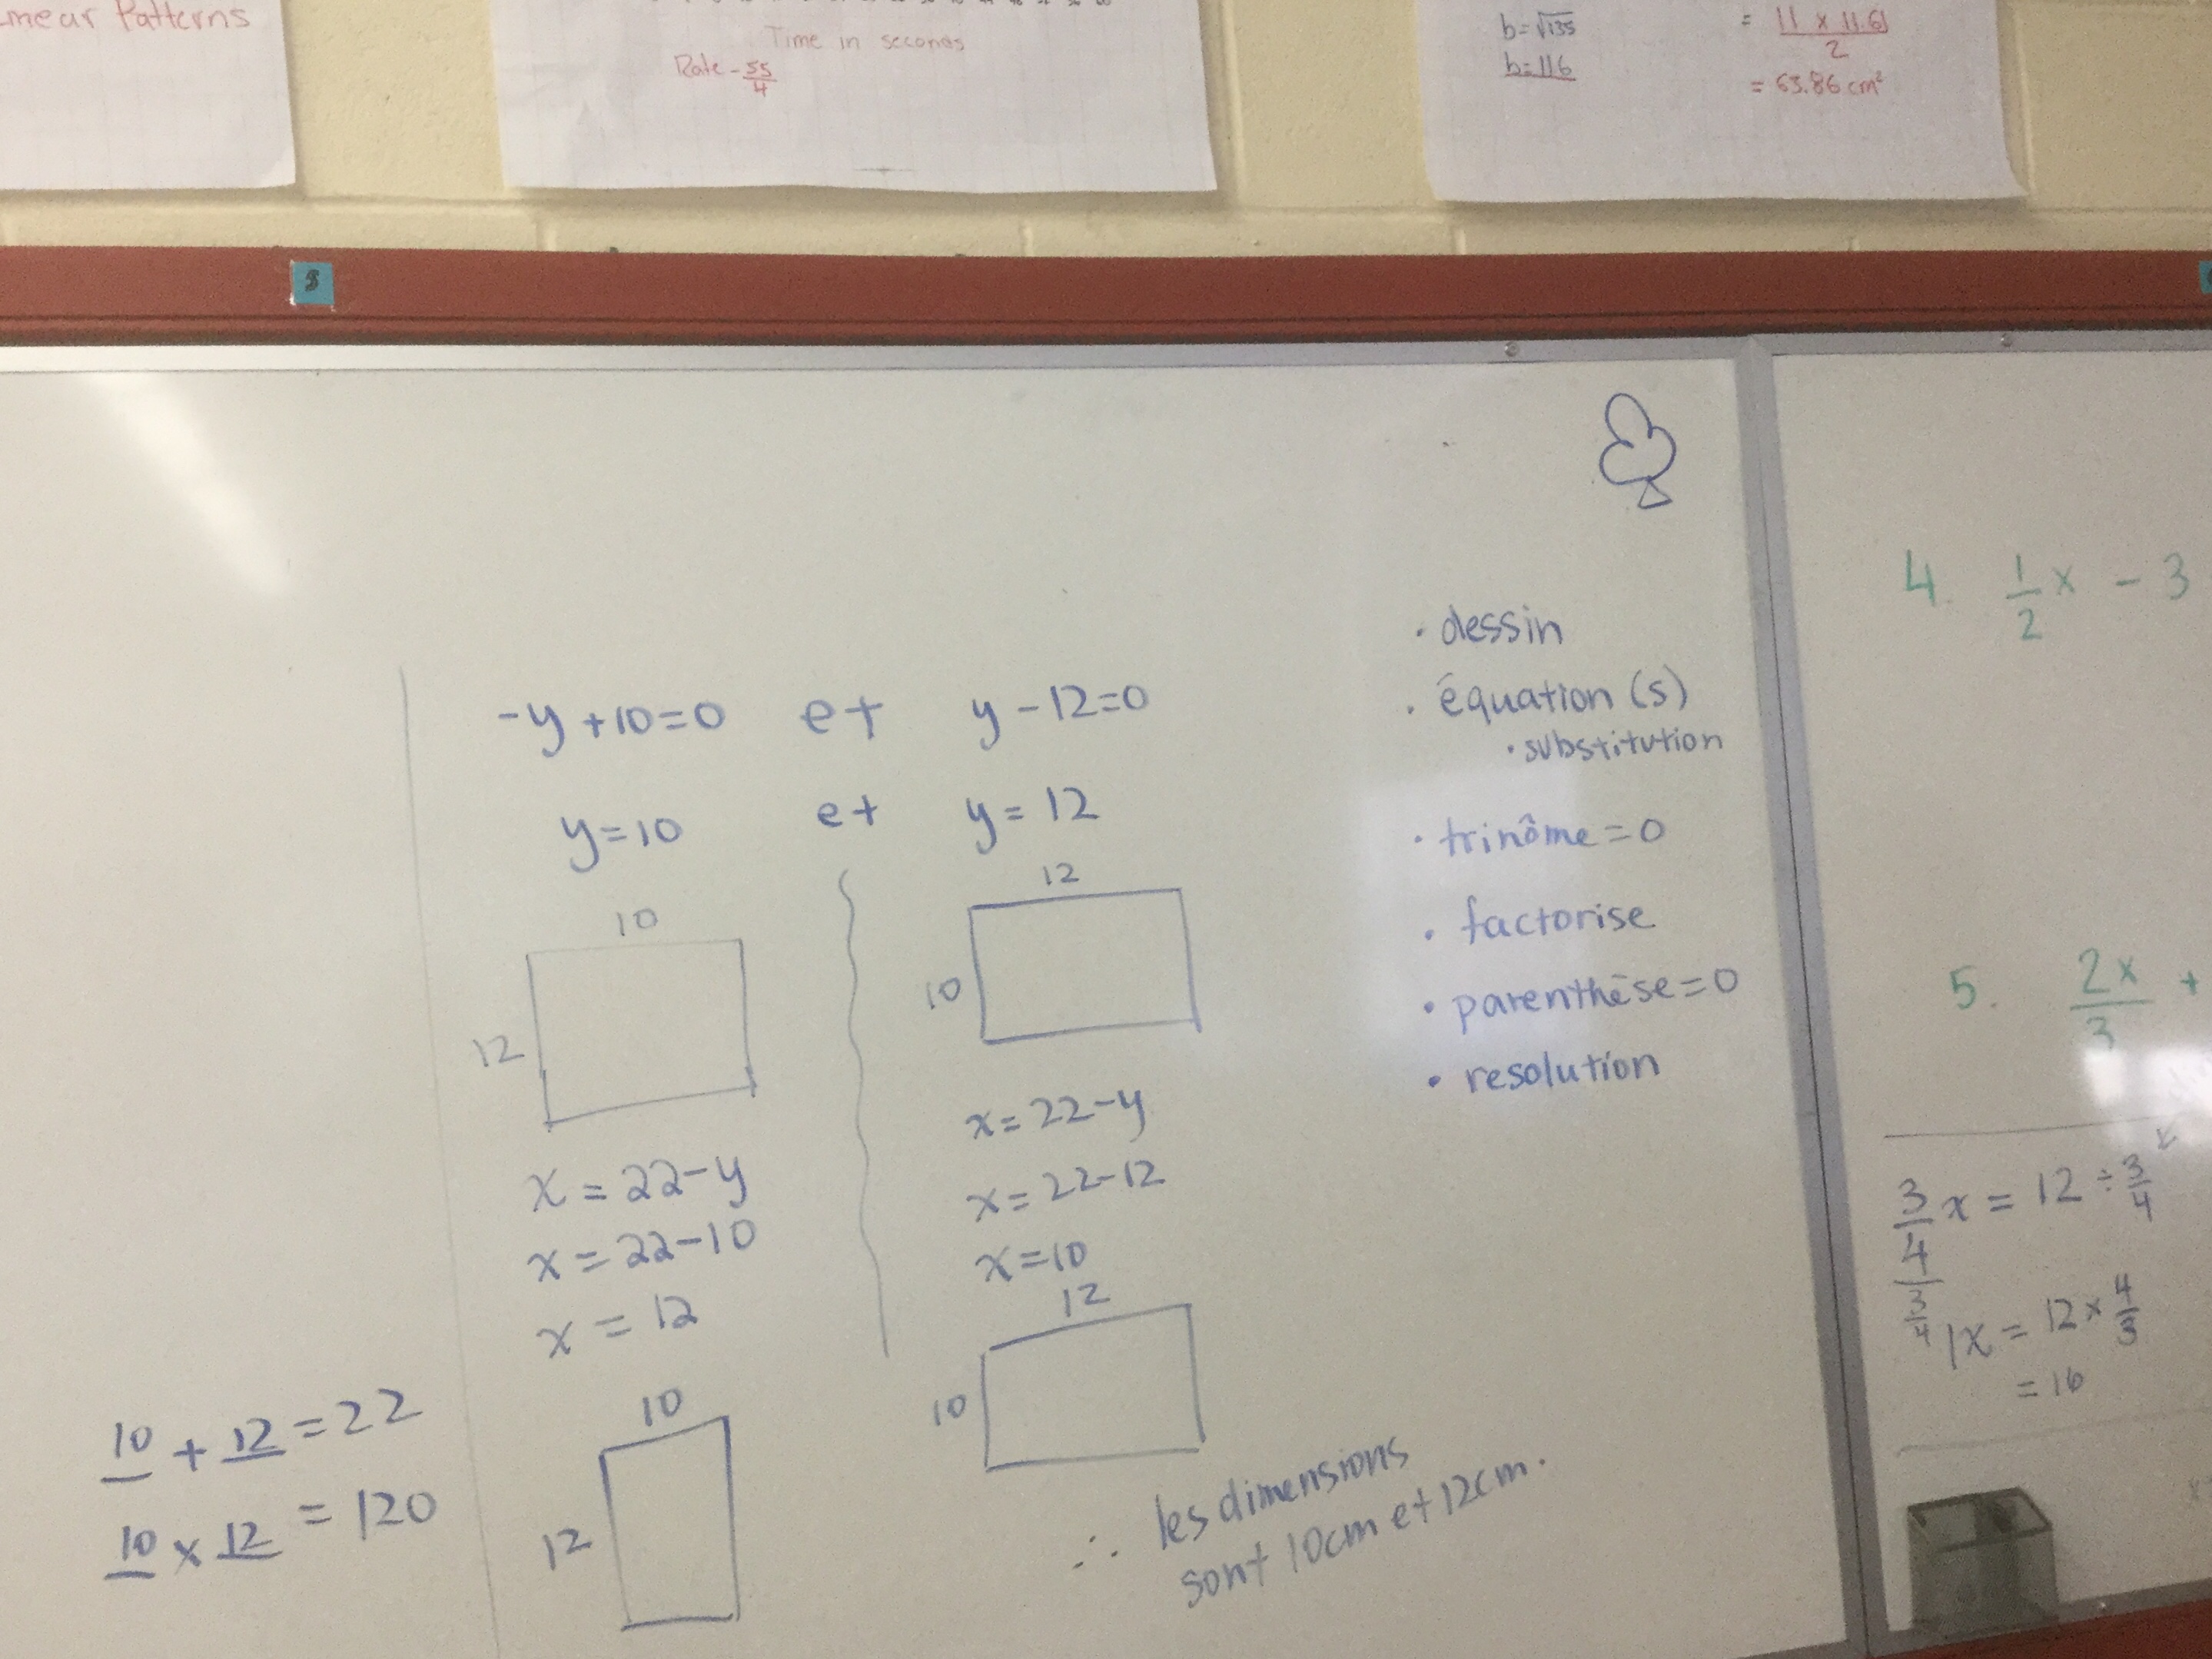 Patterns
Time in seconds
Rate - 55/4
b=√135
b=116
= 11 x 11.61
2
= 63.86 cm²
-y+10=0 et y-12=0
y=10 et y=12
10
12
12
10
x=22-y
x=22-10
x=12
x=22-y
x=22-12
x=10
10
12
12
10
10 + 12 = 22
10 x 12 = 120
∴ les dimensions
sont 10cm et 12cm.
• dessin
• équation (s)
• substitution
• trinôme=0
• factorise
• parenthèse=0
• resolution
4. 1/2 x - 3
5. 2x/3 +
3/4 x = 12 ÷ 3/4
3/4
1x = 12 x 4/3
= 16